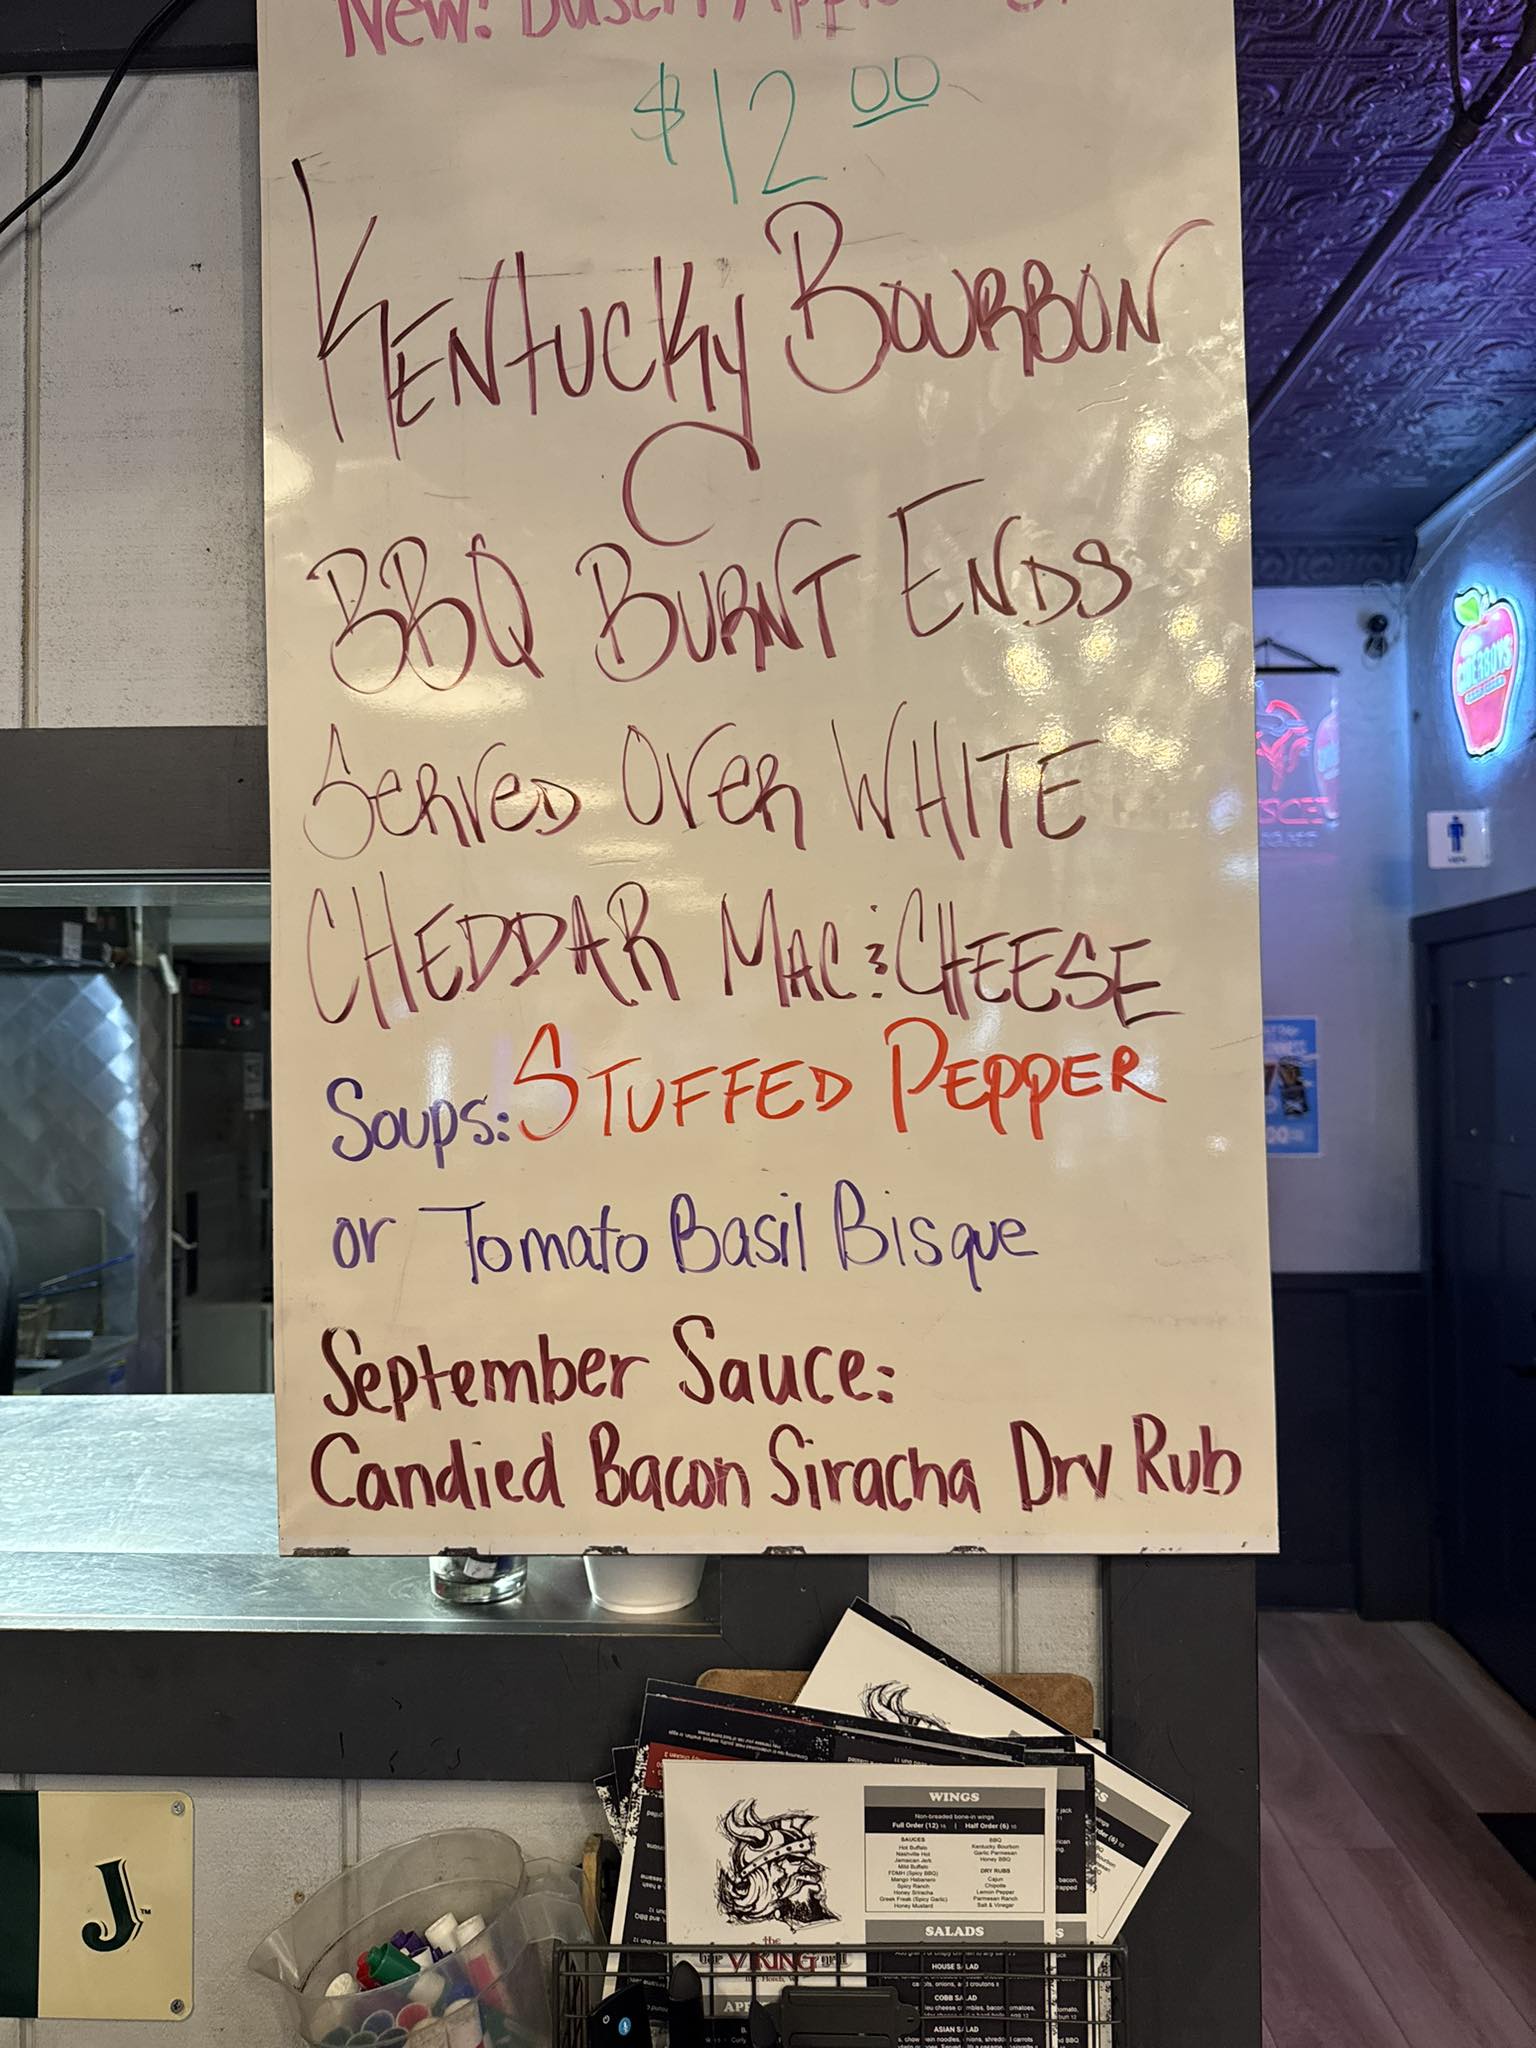 New! Busch Apple
$12.00
Kentucky Bourbon
BBQ Burnt Ends
Served Over White
Cheddar Mac & Cheese
Soups: Stuffed Pepper
or Tomato Basil Bisque
September Sauce:
Candied Bacon Siracha Dry Rub
CIDERBOYS
HARD CIDER
MEN
J
TM
WINGS
Non-breaded bone-in wings
Full Order (12) 16 | Half Order (6) 10
SAUCES
Hot Buffalo
Nashville Hot
Jamaican Jerk
Mild Buffalo
FDMH (Spicy BBQ)
Mango Habanero
Spicy Ranch
Honey Sriracha
Greek Freak (Spicy Garlic)
Honey Mustard
BBQ
Kentucky Bourbon
Garlic Parmesan
Honey BBQ
DRY RUBS
Cajun
Chipotle
Lemon Pepper
Parmesan Ranch
Salt & Vinegar
the
bar VIKING grill
SALADS
HOUSE SALAD
COBB SALAD
ASIAN SALAD